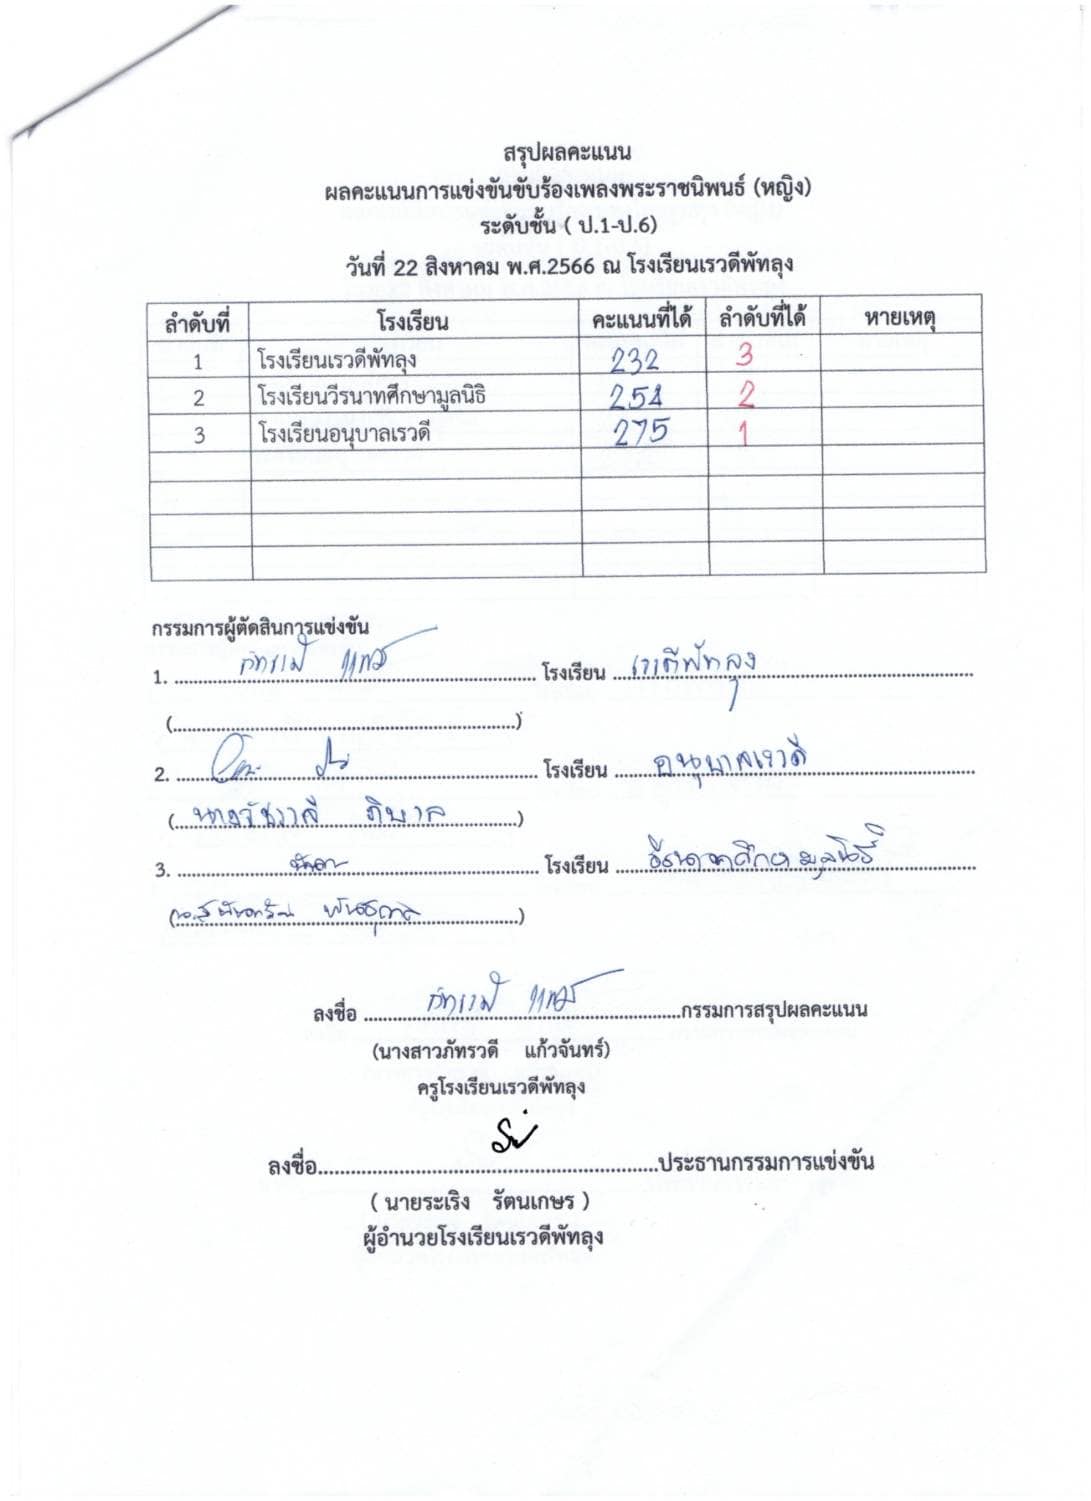 สรุปผลคะแนน
ผลคะแนนการแข่งขันขับร้องเพลงพระราชนิพนธ์ (หญิง)
ระดับชั้น ( ป.1-ป.6)
วันที่ 22 สิงหาคม พ.ศ.2566 ณ โรงเรียนเรวดีพัทลุง
ลำดับที่ โรงเรียน คะแนนที่ได้ ลำดับที่ได้ หายเหตุ
1 โรงเรียนเรวดีพัทลุง 232 3
2 โรงเรียนวีรนาทศึกษามูลนิธิ 254 2
3 โรงเรียนอนุบาลเรวดี 275 1
กรรมการผู้ตัดสินการแข่งขัน
1. ........ โรงเรียน เรวดีพัทลุง
(........)
2. ........ โรงเรียน อนุบาลเรวดี
(........)
3. ........ โรงเรียน วีรนาทศึกษามูลนิธิ
(........)
ลงชื่อ ........กรรมการสรุปผลคะแนน
(นางสาวภัทรวดี แก้วจันทร์)
ครูโรงเรียนเรวดีพัทลุง
ลงชื่อ........ประธานกรรมการแข่งขัน
( นายระเริง รัตนเกษร )
ผู้อำนวยโรงเรียนเรวดีพัทลุง